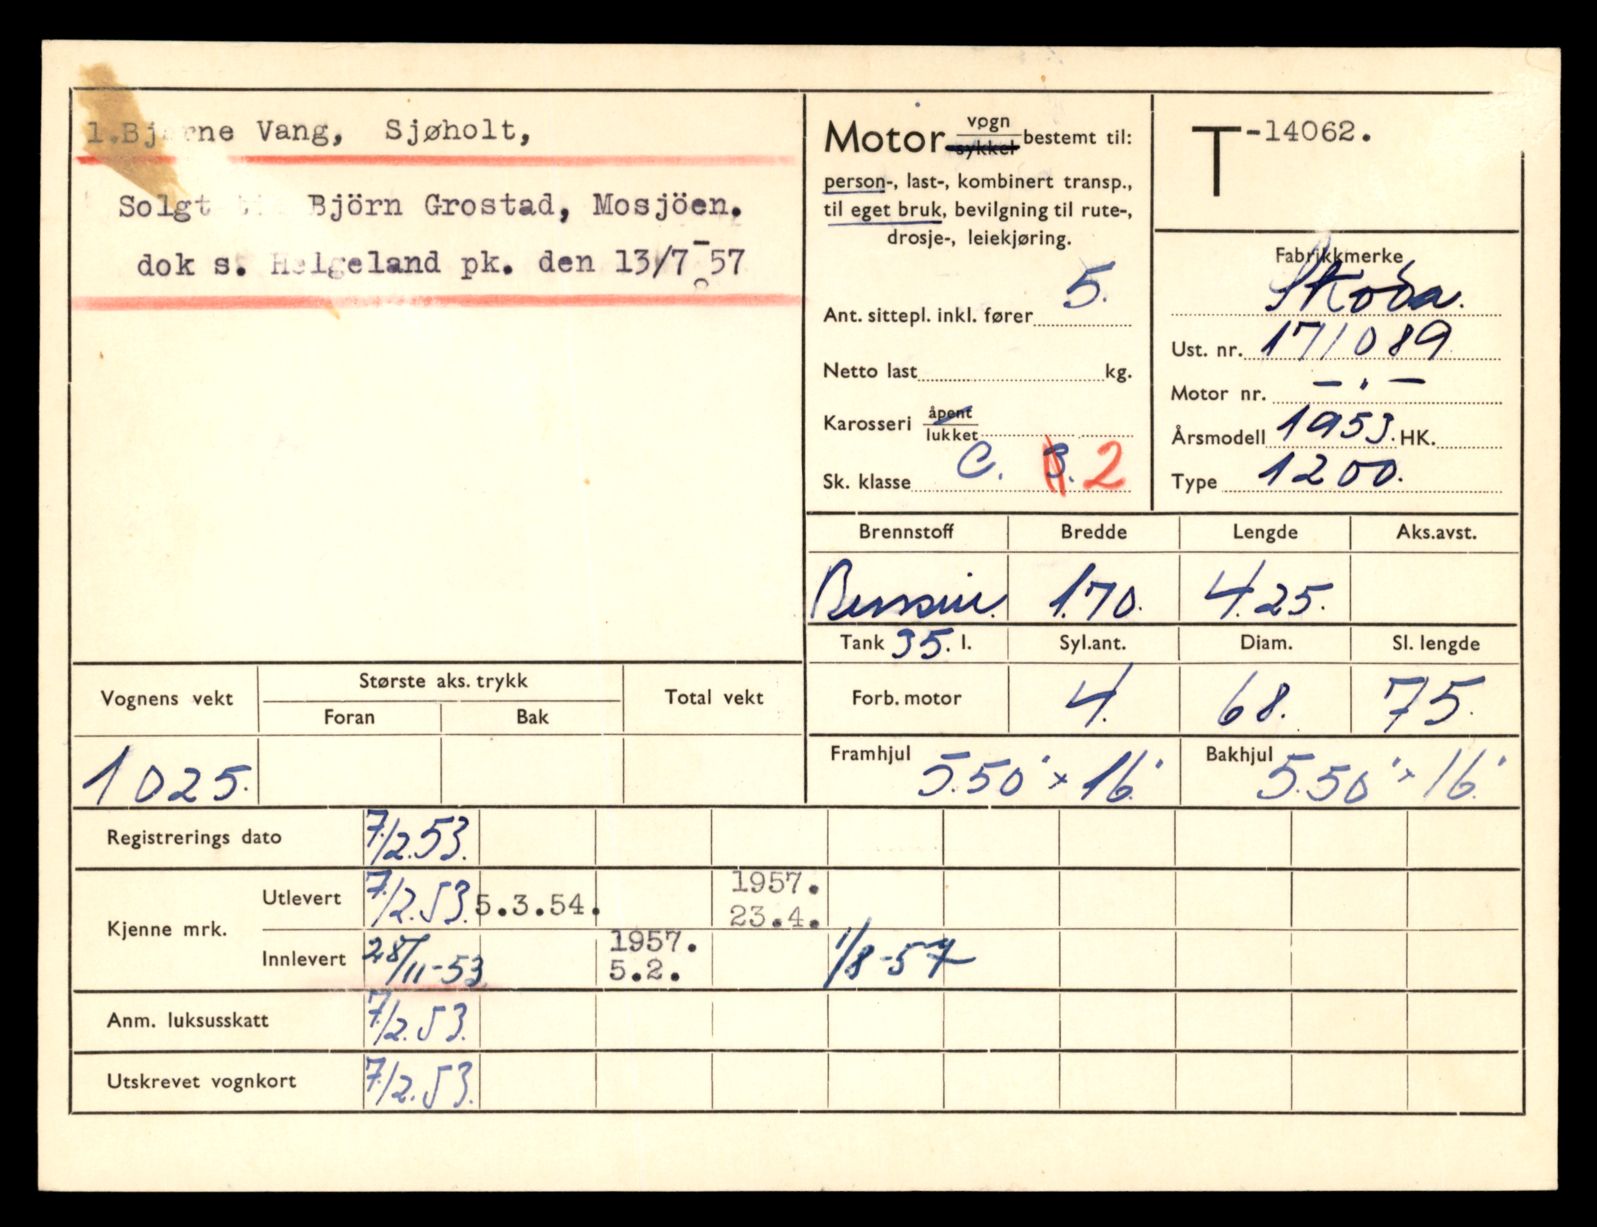 1.Bjarne Vang, Sjøholt,
Solgt til Björn Grostad, Mosjöen.
dok s. Helgeland pk. den 13/7-57
Motor vogn/sykkel bestemt til:
person-, last-, kombinert transp.,
til eget bruk, bevilgning til rute-,
drosje-, leiekjøring.
Ant. sittepl. inkl. fører 5.
Netto last kg.
Karosseri åpent/lukket
Sk. klasse C. 3. 2
T-14062.
Fabrikkmerke
Skoda.
Ust. nr. 171089
Motor nr. — " —
Årsmodell 1953. HK.
Type 1200.
Brennstoff Bredde Lengde Aks.avst.
Bensin. 1.70. 4.25.
Tank 35. l. Syl.ant. Diam. Sl. lengde
Forb. motor 4. 68. 75.
Framhjul 5.50" x 16" Bakhjul 5.50" x 16"
Vognens vekt Største aks. trykk Total vekt
Foran Bak
1025.
Registrerings dato 7/2.53.
Kjenne mrk.
Utlevert 7/2.53. 5.3.54. 1957. 23.4.
Innlevert 28/11-53 1957. 5.2. 1/8-57
Anm. luksusskatt 7/2.53.
Utskrevet vognkort 7/2.53.